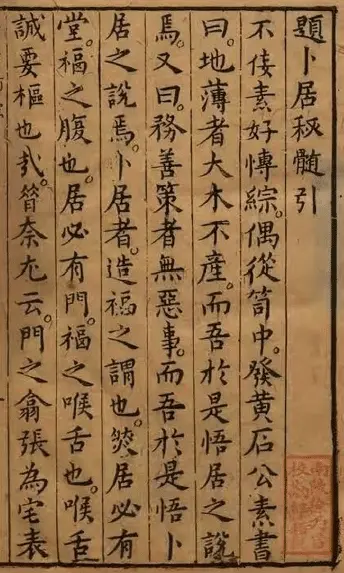 題卜居秘髓引
不佞素好博綜。偶從笥中。發黃石公素書
曰。地薄者大木不產。而吾於是悟居之說
焉。又曰。務善策者無惡事。而吾於是悟卜
居之說焉。卜居者。造福之謂也。然居必有
堂。福之腹也。居必有門。福之喉舌也。喉舌
誠要樞也哉。昝奈尢云。門之翕張為宅表